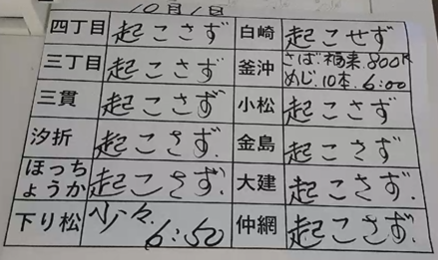 10月1日
四丁目 起こさず 白崎 起こせず
三丁目 起こさず 釜沖 さば.福来.800K
めじ.10本.6:00
三貫 起こさず 小松 起こさず
汐折 起こさず. 金島 起こさず
ほっち
ょうか 起こさず. 大建 起こさず.
下り松 少々. 6:50 仲網 起こさず.